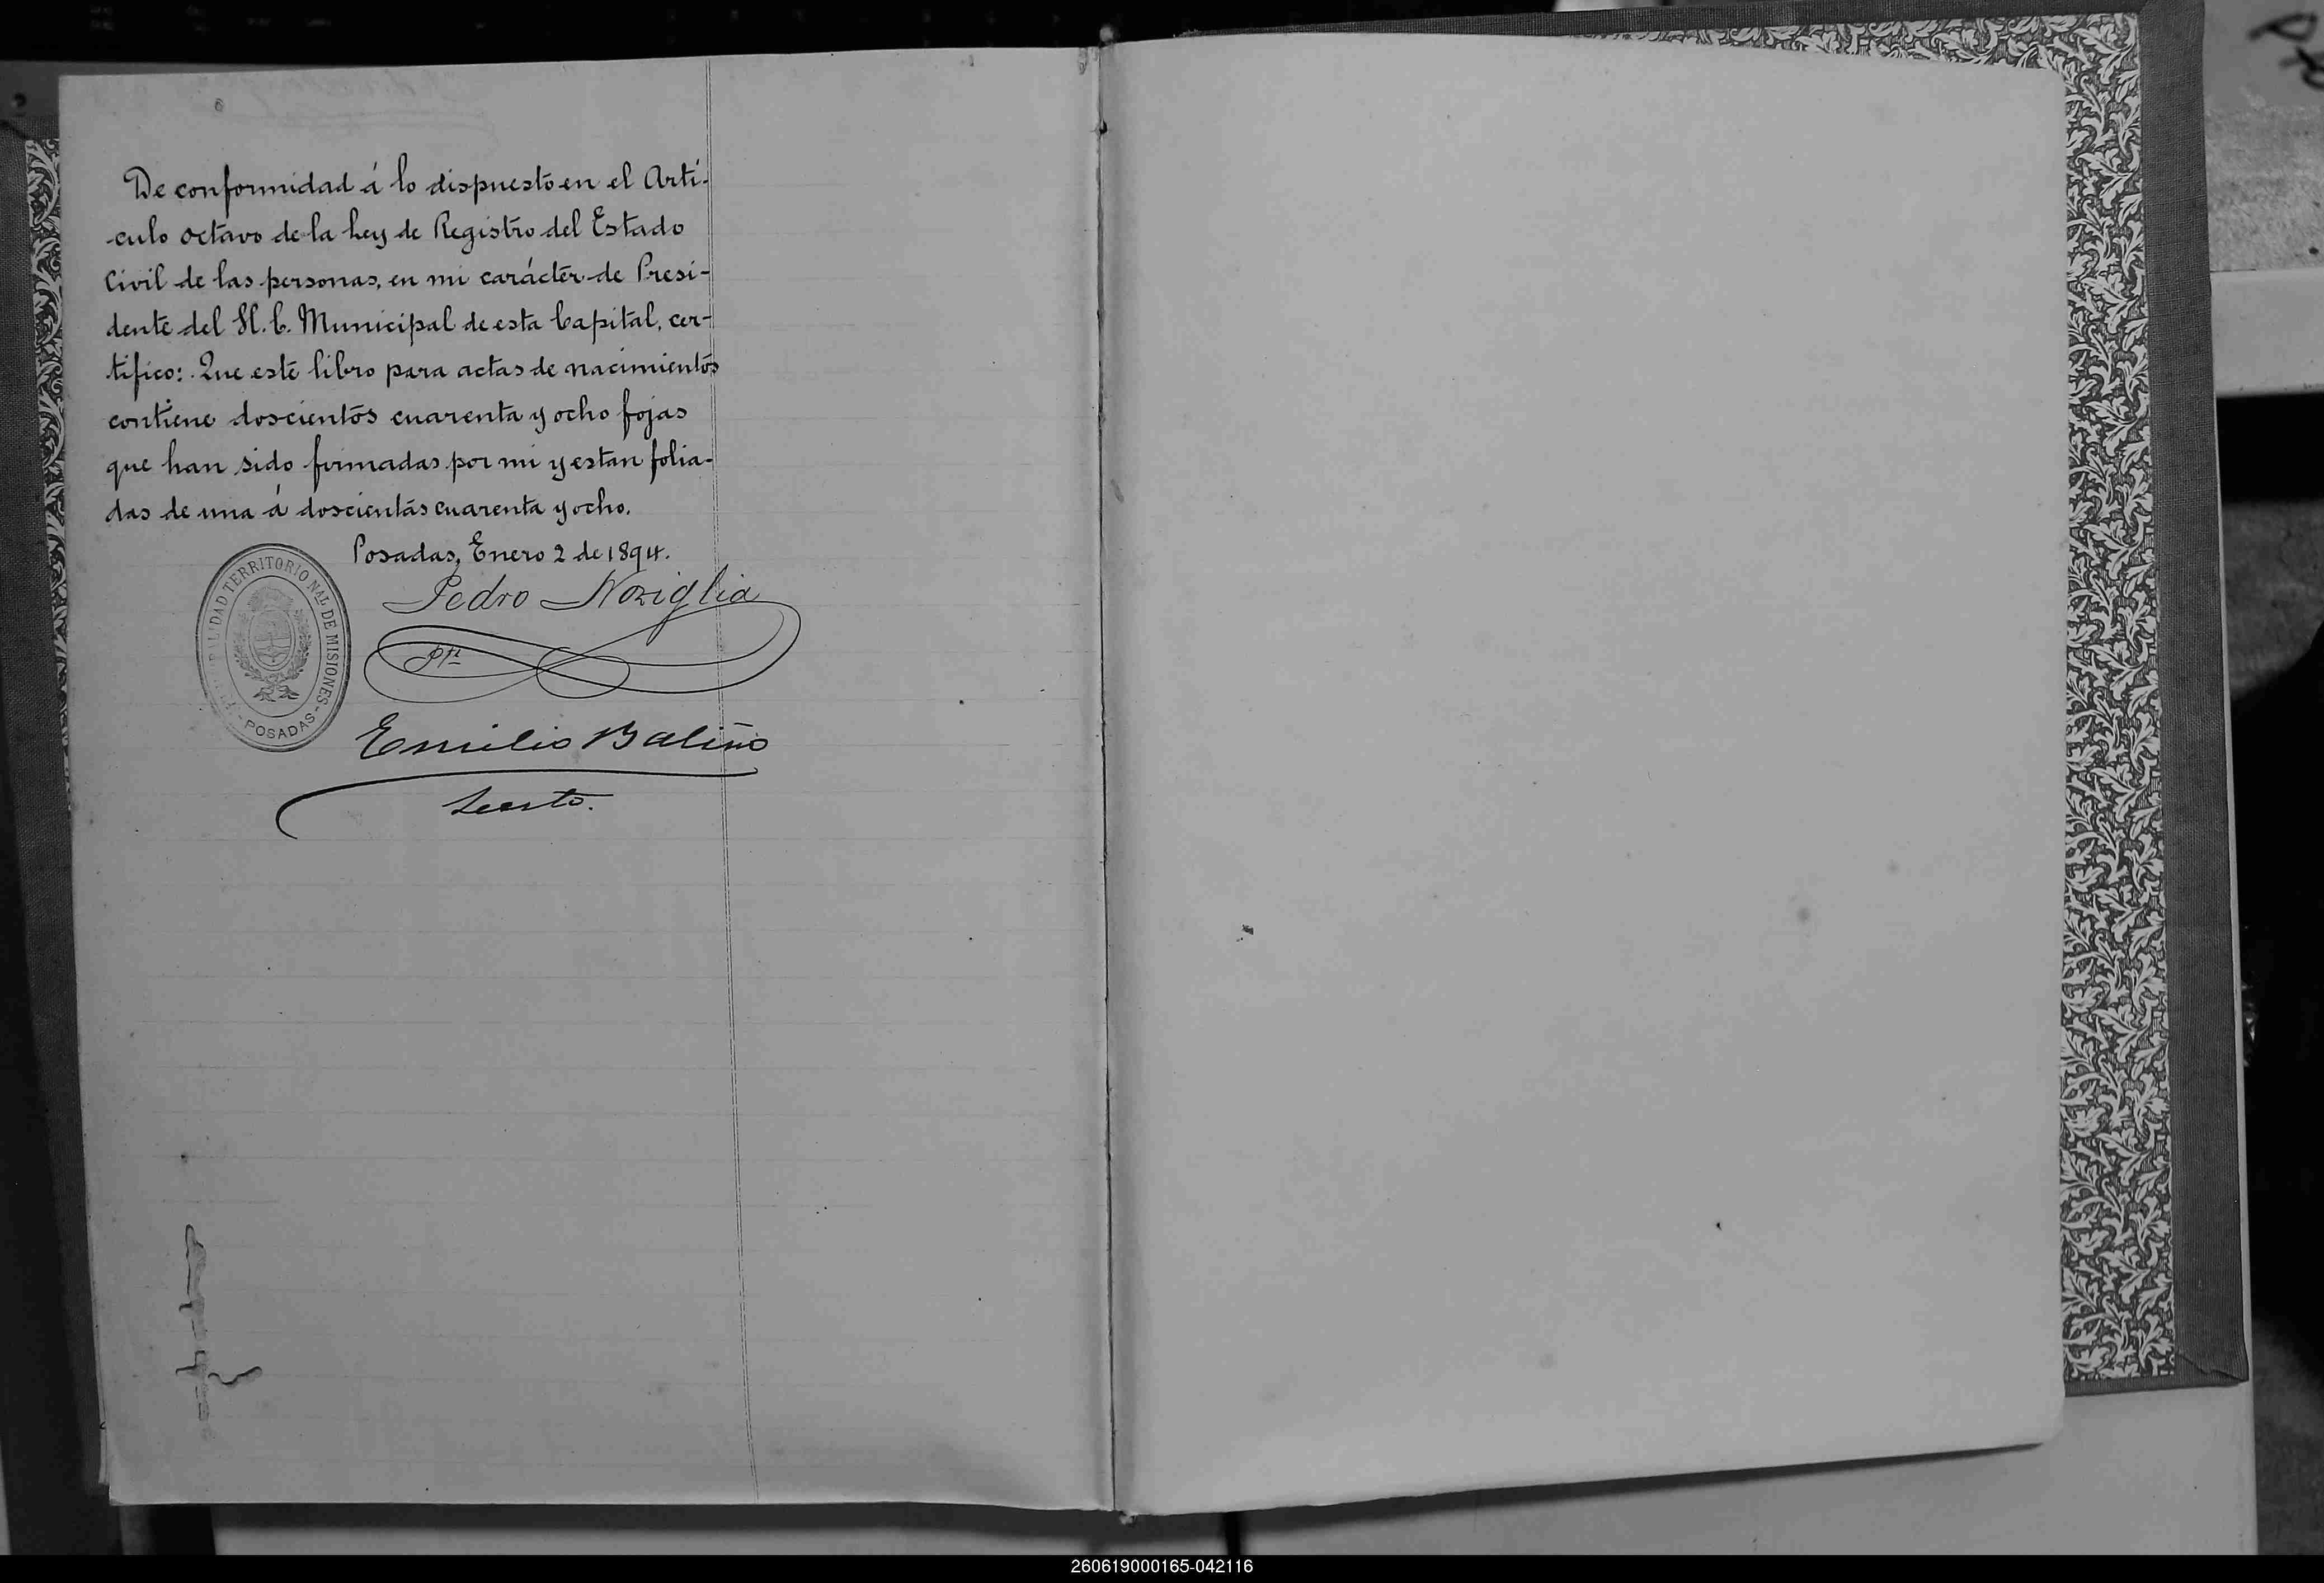 De conformidad á lo dispuesto en el Artí-
-culo octavo de la Ley de Registro del Estado
Civil de las personas, en mi carácter de Presi-
dente del H. C. Municipal de esta Capital, cer-
tifico: Que este libro para actas de nacimientos
contiene doscientos cuarenta y ocho fojas
que han sido firmadas por mi y estan folia-
das de una á doscientas cuarenta y ocho.
Posadas, Enero 2 de 1894.
Pedro Noziglia
Pte
Emilio Baliño
Secrto.
TERRITORIO NAL. DE MISIONES
- POSADAS -
260619000165-042116